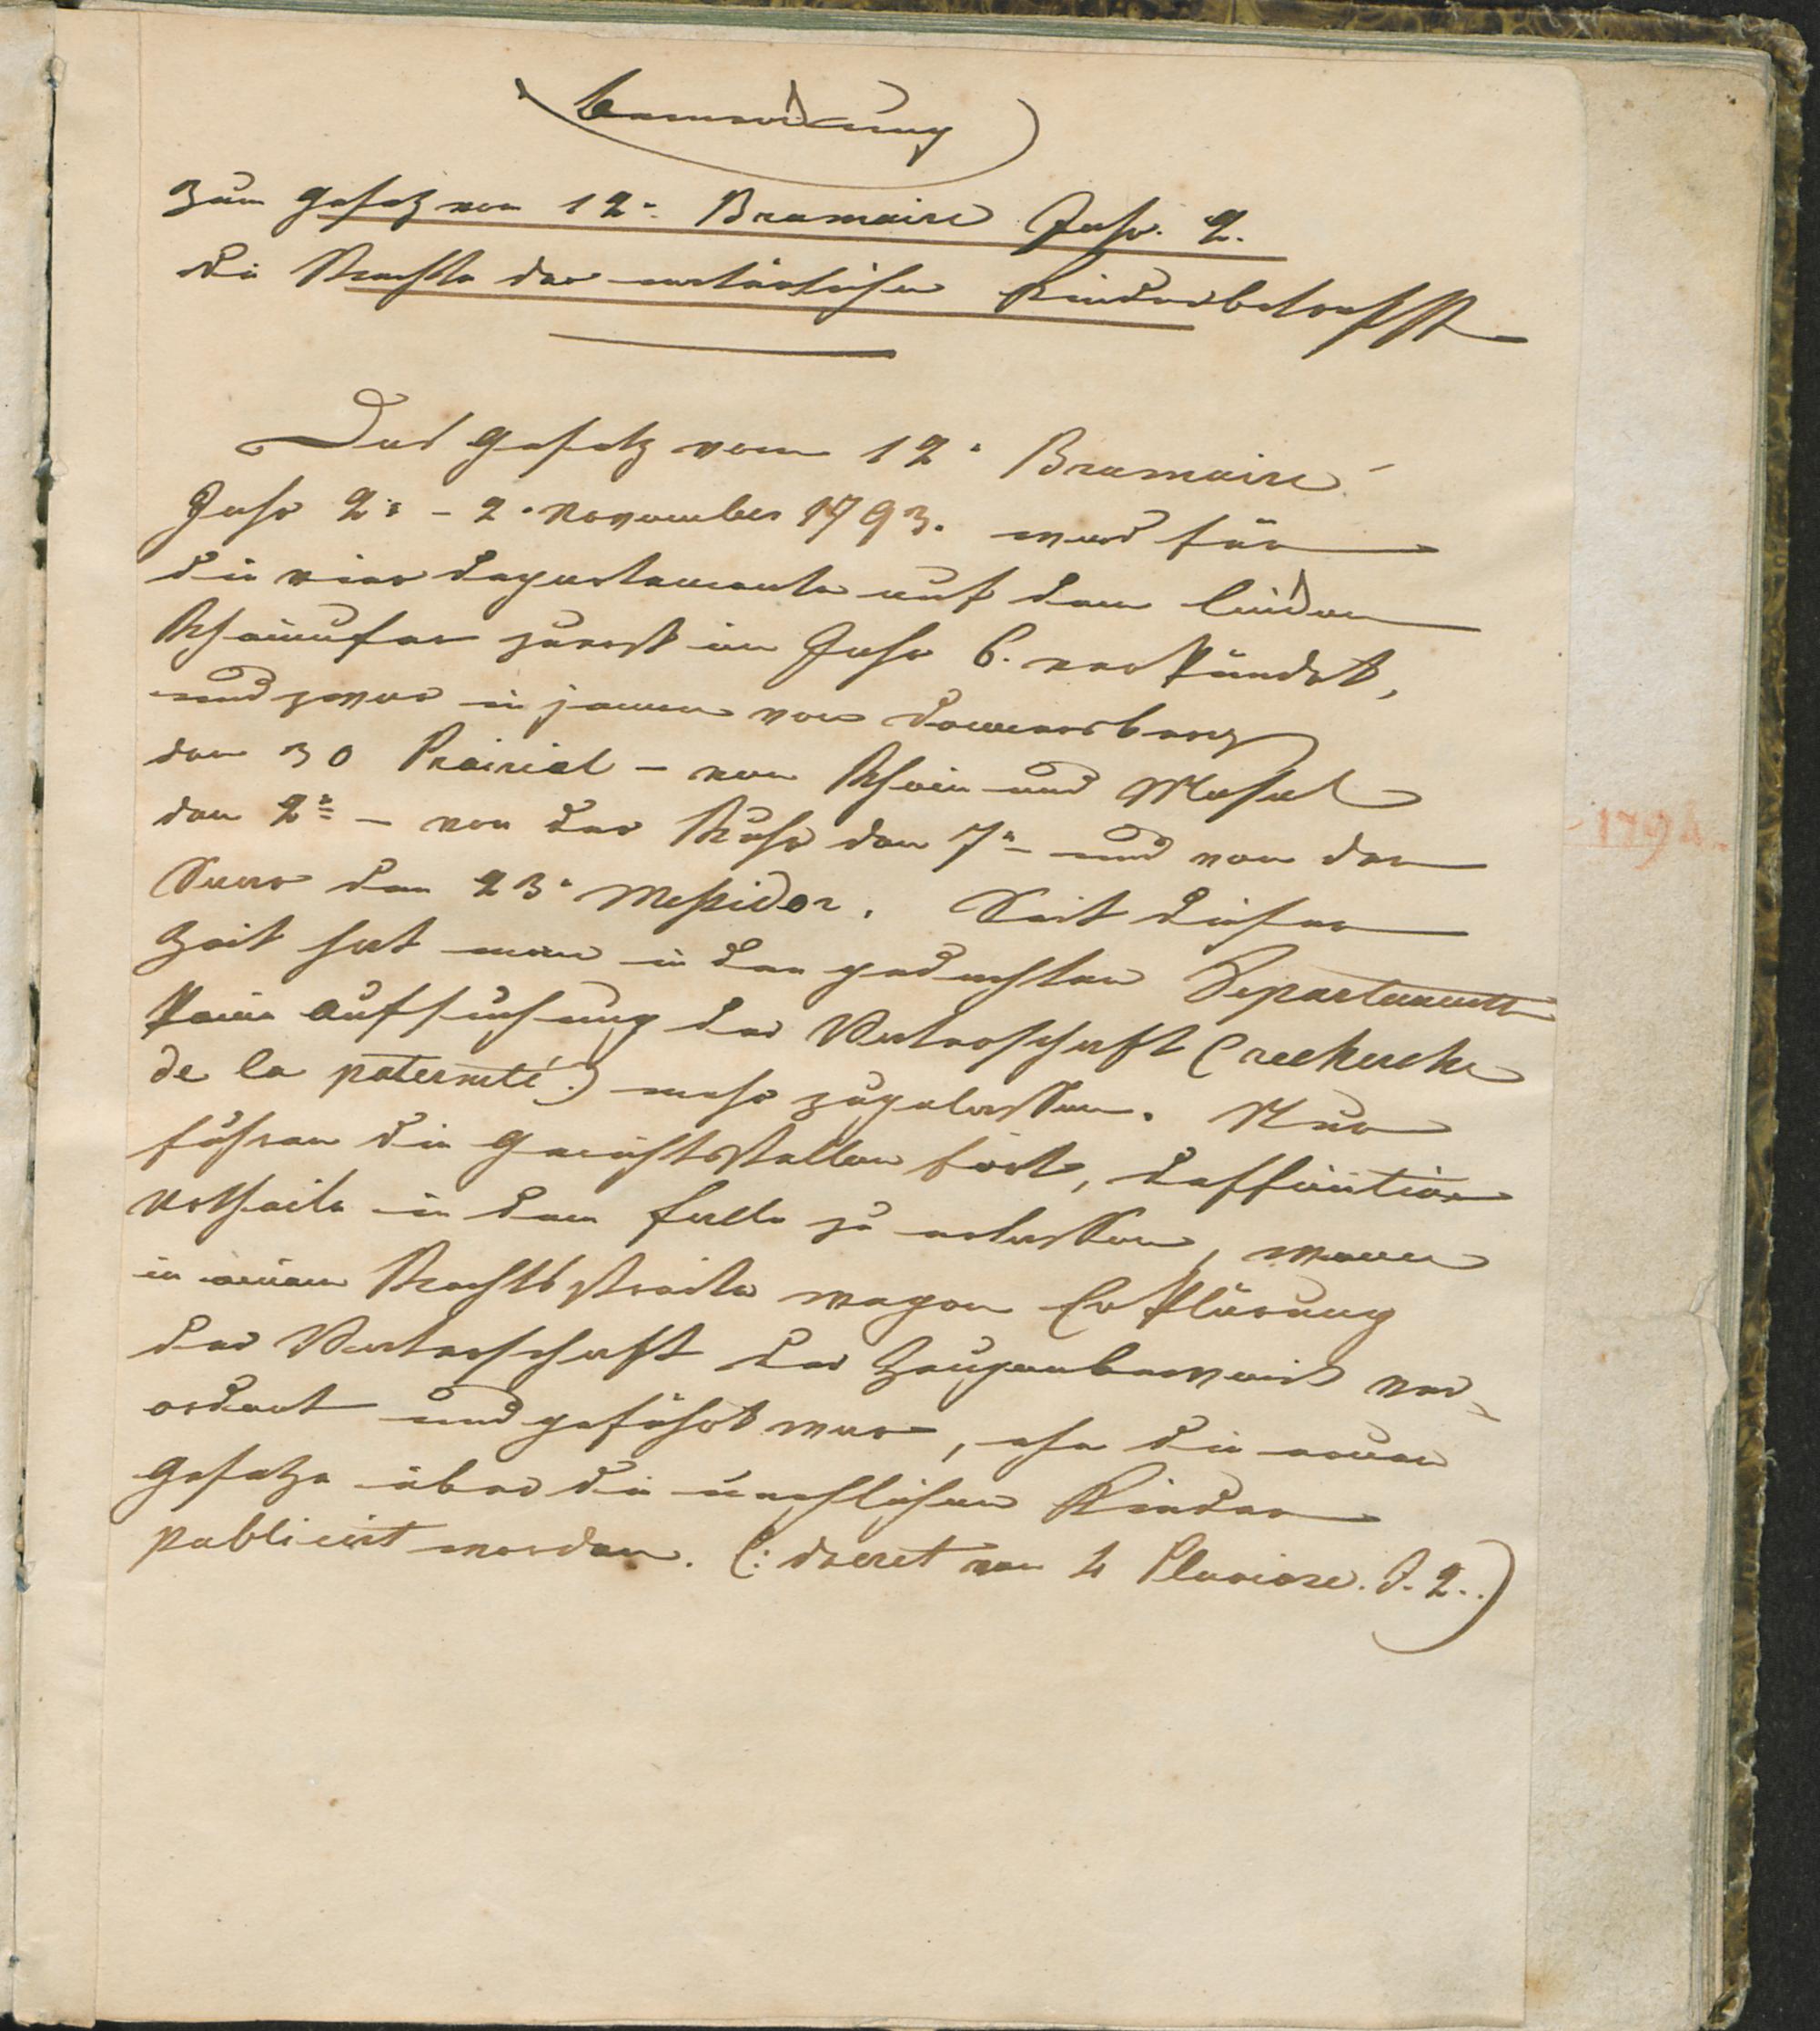 Bemerkung
zum Gesetz vom 12n. Brumaire Jahr. 2.
die Rechte der natürlichen Kinder betreffst
Das Gesetz vom 12n Brumaire
Jahr 2n - 2. November 1793. ward für
die vier Departemente auf dem linken
Rheinufer zuerst im Jahr 6. verkündet,
und zwar in jenem von Donnersberg
den 30 Prairial - von Rhein und Mosel
den 2n - von der Ruhr den 7n - und von der
Saar den 23n Messidor. Seit dieser
Zeit hat man in den gedachten Departements
keine Aufsuchung der Vaterschaft (recherche
de la paternité.) mehr zugelassen. Nur
fuhren die Gerichtsstellen fort, deffinitive
Urtheile in dem Falle zu erlassen, wenn
in einem Rechtsstreite wegen Erklärung
der Vaterschaft der Zeugenbeweis ver-
ordnet und geführt war, ehe die neuen
Gesetze über die unehlichen Kinder
publicirt worden. (: decret vom 4 Pluviose. J. 2..)
- 1794.